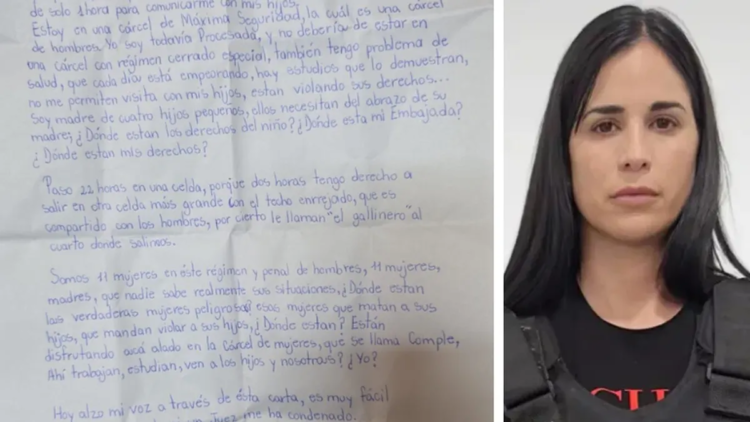 de solo 1 hora para comunicarme con mis hijos.
Estoy en una cárcel de Máxima Seguridad, la cuál es una cárcel
de hombres. Yo soy todavía Procesada, y no debería de estar en
una cárcel con régimen cerrado especial, también tengo problema de
salud, que cada día está empeorando, hay estudios que lo demuestran,
no me permiten visita con mis hijos, estan violando sus derechos...
Soy madre de cuatro hijos pequeños, ellos necesitan del abrazo de su
madre, ¿Dónde estan los derechos del niño? ¿Dónde esta mi Embajada?
¿Dónde estan mis derechos?
Paso 22 horas en una celda, porque dos horas tengo derecho a
salir en otra celda más grande con el techo enrejado, que es
compartido con los hombres, por cierto le llaman "el gallinero" al
cuarto donde salimos.
Somos 11 mujeres en éste régimen y penal de hombres, 11 mujeres,
madres, que nadie sabe realmente sus situaciones, ¿Dónde estan
las verdaderas mujeres peligrosas? esas mujeres que matan a sus
hijos, que mandan violar a sus hijos, ¿Dónde estan? Están
disfrutando acá alado en la cárcel de mujeres, que se llama Comple,
Ahí trabajan, estudian, ven a los hijos y nosotras? ¿Yo?
Hoy alzo mi voz a través de ésta carta, es muy fácil
Juez me ha condenado.